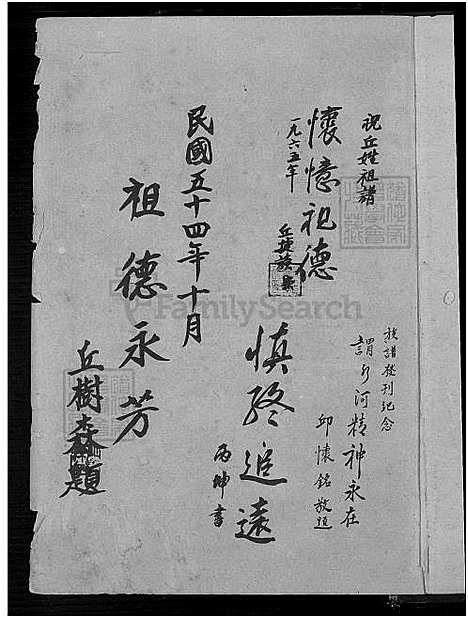 祝丘姓祖譜
懷憶祖德
一九六五年
丘捷族
族譜發刊紀念
河精神永在
邱懷銘敬題
慎終追遠
丙坤書
民國五十四年十月
祖德永芳
丘樹森題
FamilySearch